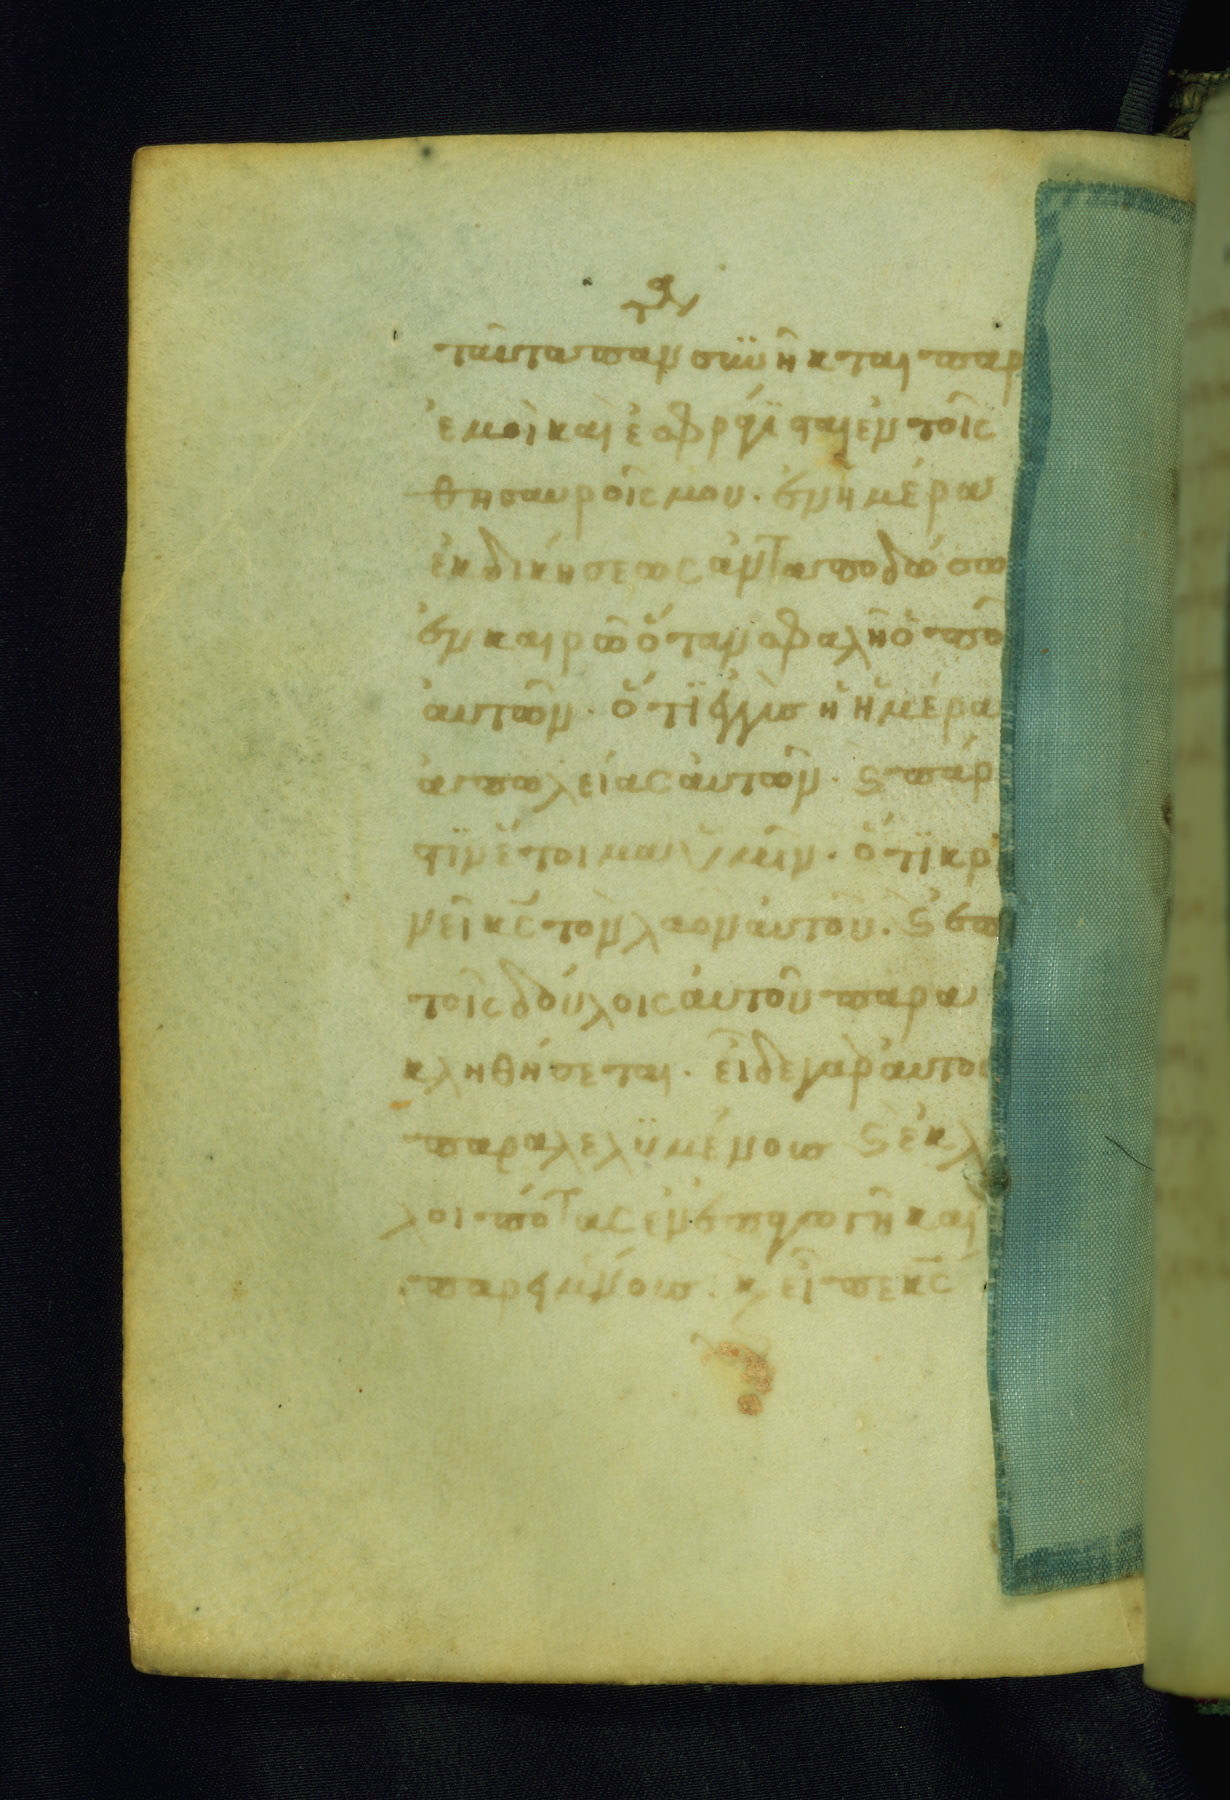 ταῦτα πάντα συνῆκται παρ
ἐμοὶ καὶ ἐσφράγισται ἐν τοῖς
θησαυροῖς μου · ἐν ἡμέρα
ἐκδικήσεως ἀνταποδώσω
ἐν καιρῶ ὅταν σφαλῆ ὁ ποῦ
ἀυτῶν · ὅτι ἐγγὺς ἡ ἡμέρα
ἀπωλείας ἀυτῶν · ϗ πάρ
ἕτοιμα ὑμῖν · ὅτι κρι
νεῖ κς τὸν λαὸν ἀυτοῦ · ϗ ἐπι
τοῖς δούλοις ἀυτοῦ παρα
κληθήσεται · εἶδε γαρ ἀυτοὺ
παραλελυμένους ϗ ἐκλ
λοιπότας ἐν ἐπαγωγῆ καὶ
παρειμένους · κ εἶπε κς